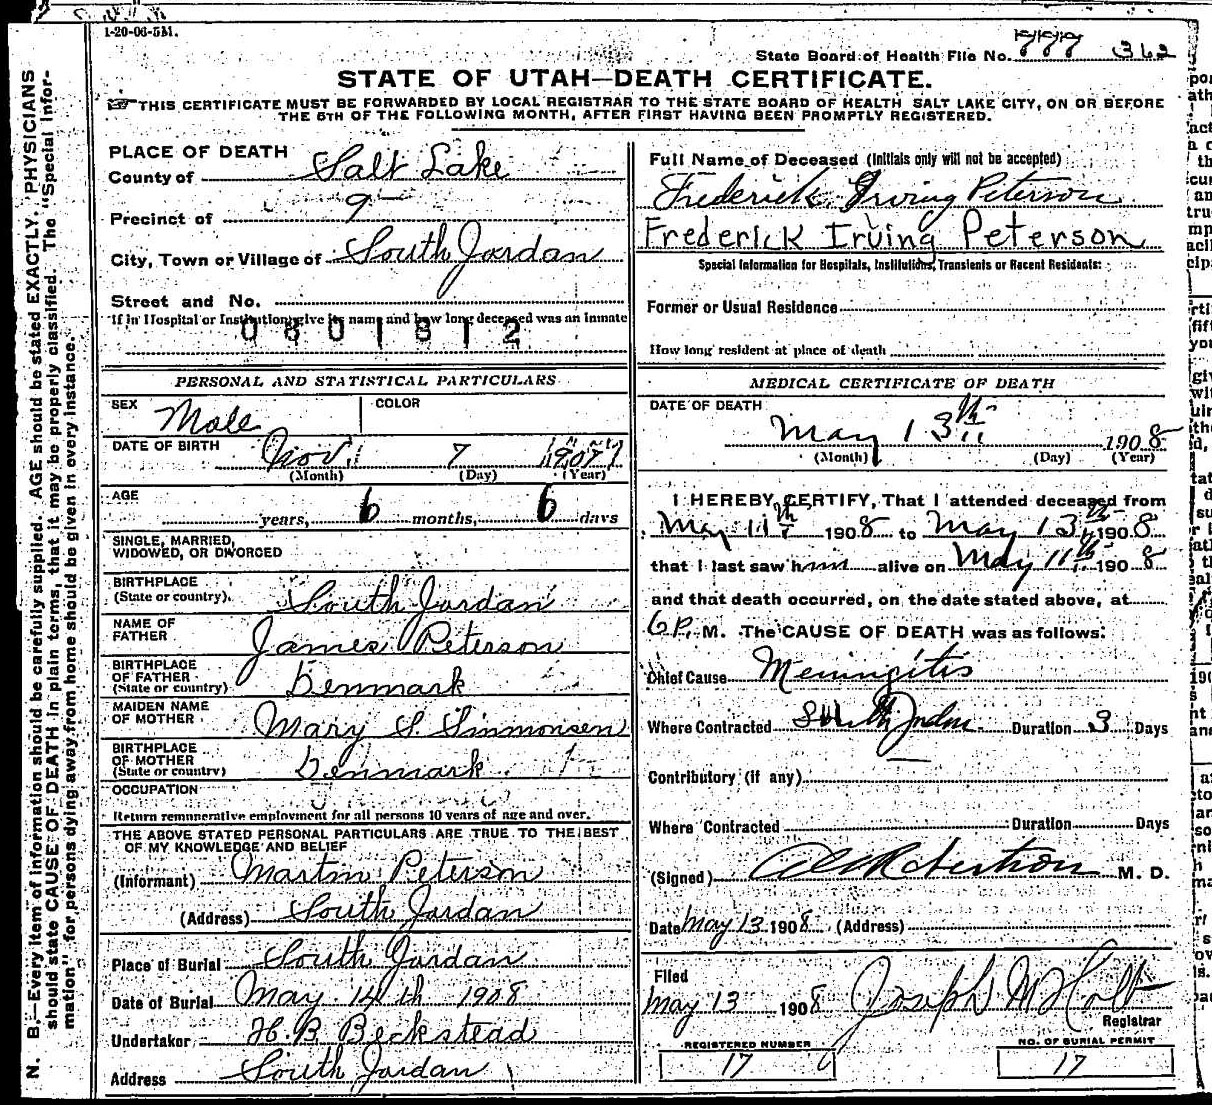 1-20-06-5M.
State Board of Health File No. 777 362
STATE OF UTAH—DEATH CERTIFICATE.
THIS CERTIFICATE MUST BE FORWARDED BY LOCAL REGISTRAR TO THE STATE BOARD OF HEALTH SALT LAKE CITY, ON OR BEFORE
THE 5TH OF THE FOLLOWING MONTH, AFTER FIRST HAVING BEEN PROMPTLY REGISTERED.
N. B.—Every item of information should be carefully supplied. AGE should be stated EXACTLY. PHYSICIANS
should state CAUSE OF DEATH in plain terms, that it may be properly classified. The "Special Infor-
mation" for persons dying away from home should be given in every instance.
PLACE OF DEATH
County of Salt Lake
Precinct of 9
City, Town or Village of South Jordan
Street and No.
If in Hospital or Institution, give its name and how long deceased was an inmate
0801812
PERSONAL AND STATISTICAL PARTICULARS
SEX Male COLOR
DATE OF BIRTH Nov. 7 1907
(Month) (Day) (Year)
AGE
years, 6 months, 6 days
SINGLE, MARRIED,
WIDOWED, OR DIVORCED
BIRTHPLACE
(State or country). South Jordan
NAME OF
FATHER James Peterson
BIRTHPLACE
OF FATHER
(State or country) Denmark
MAIDEN NAME
OF MOTHER Mary S. Simmonsen
BIRTHPLACE
OF MOTHER
(State or country) Denmark
OCCUPATION
Return remunerative employment for all persons 10 years of age and over.
THE ABOVE STATED PERSONAL PARTICULARS ARE TRUE TO THE BEST
OF MY KNOWLEDGE AND BELIEF
(Informant) Martin Peterson
(Address) South Jordan
Place of Burial South Jordan
Date of Burial May 14th 1908
Undertaker H. B. Beckstead
Address South Jordan
Full Name of Deceased (Initials only will not be accepted)
Frederick Irving Peterson
Frederick Irving Peterson
Special Information for Hospitals, Institutions, Transients or Recent Residents:
Former or Usual Residence
How long resident at place of death
MEDICAL CERTIFICATE OF DEATH
DATE OF DEATH
May 13th 1908
(Month) (Day) (Year)
I HEREBY CERTIFY, That I attended deceased from
May 11th 1908 to May 13th 1908
that I last saw him alive on May 11th 1908
and that death occurred, on the date stated above, at
6 P. M. The CAUSE OF DEATH was as follows:
Chief Cause Meningitis
Where Contracted South Jordan Duration 3 Days
Contributory (if any)
Where Contracted Duration Days
(Signed) Robertson M. D.
Date May 13 1908 (Address)
Filed
May 13 1908 Joseph M Holt
Registrar
REGISTERED NUMBER
17
NO. OF BURIAL PERMIT
17